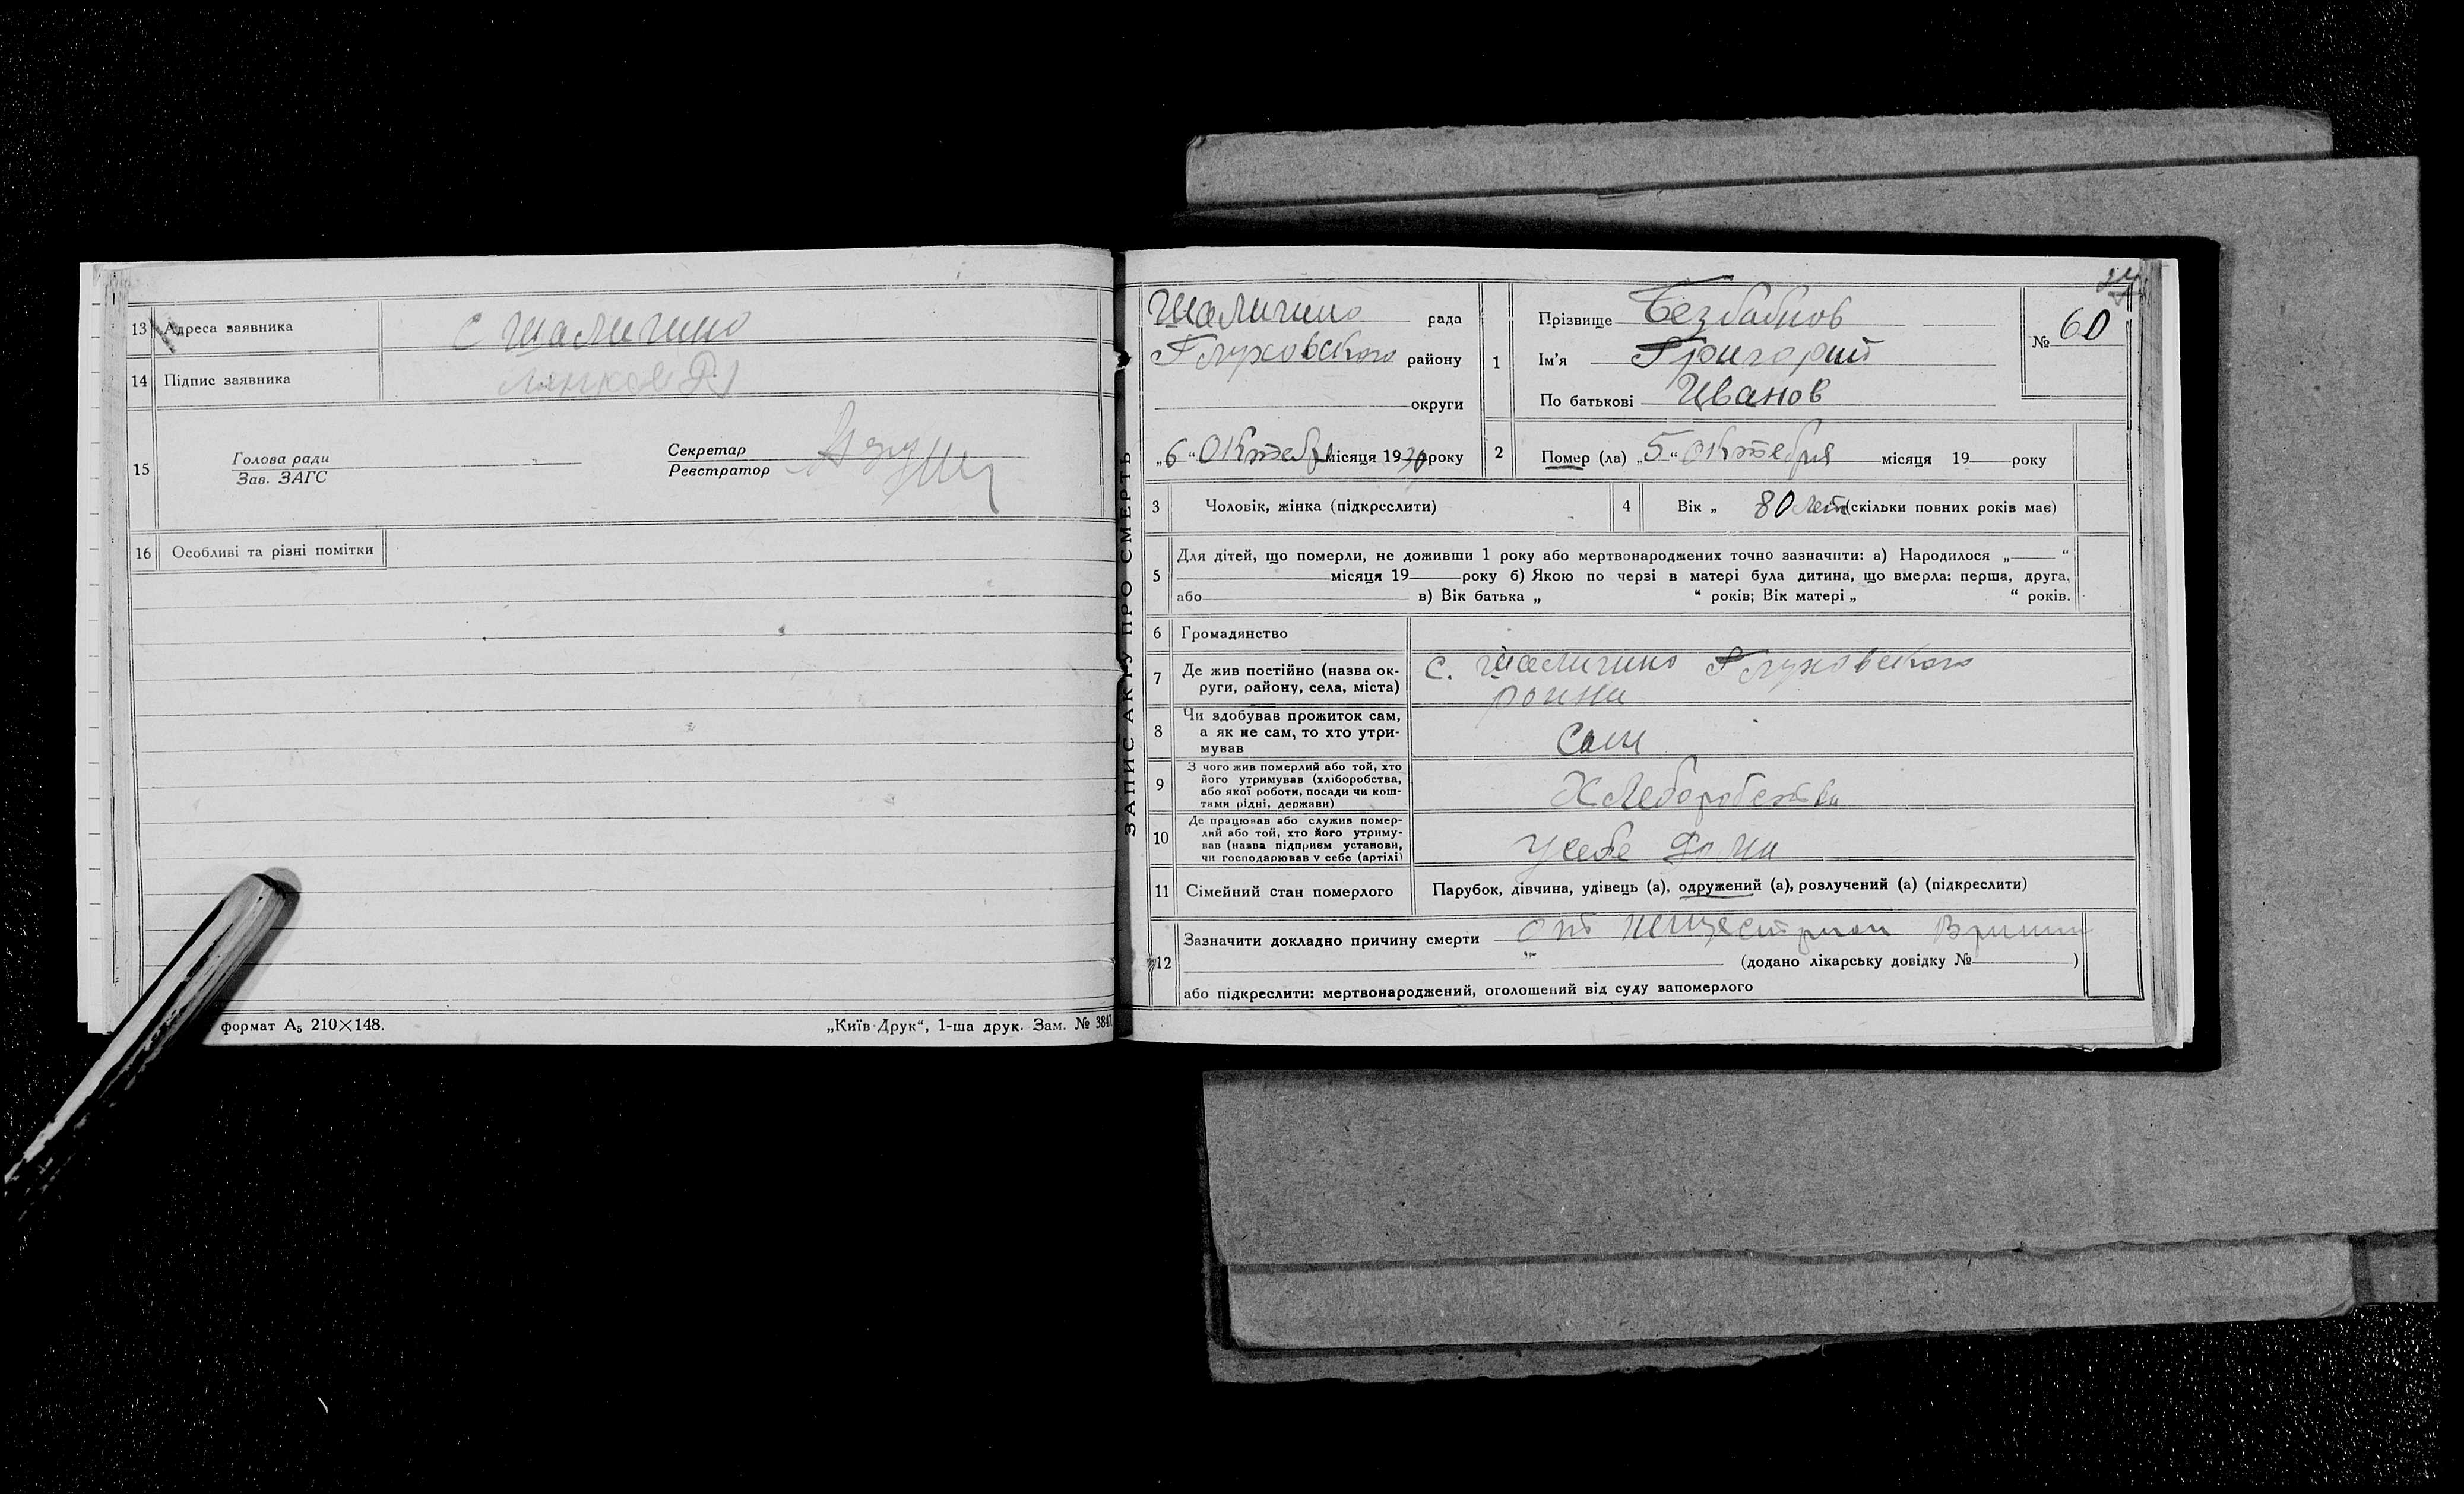 13 Адреса заявника с Шаличино
14 Підпис заявника
15 Голова ради
Зав. ЗАГС
Секретар
Реєстратор
16 Особливі та різні помітки
формат А5 210×148.
„Київ-Друк“, 1-ша друк. Зам. № 3847
ЗАПИС АКТУ ПРО СМЕРТЬ
Шаличино рада
Глуховского району
округи
„6“ Октебр місяця 1930 року
№ 60
1 Прізвище Безбабнов
Ім'я Григорий
По батькові Иванов
2 Помер (ла) „5“ Октебря місяця 19 року
3 Чоловік, жінка (підкреслити)
4 Вік „ 80 лет (скільки повних років має)
5 Для дітей, що померли, не доживши 1 року або мертвонароджених точно зазначити: а) Народилося „ “
місяця 19 року б) Якою по черзі в матері була дитина, що вмерла: перша, друга,
або в) Вік батька „ “ років; Вік матері „ “ років.
6 Громадянство
7 Де жив постійно (назва ок-
руги, району, села, міста)
с. Шаличино Глуховского
8 Чи здобував прожиток сам,
а як не сам, то хто утри-
мував
Сам
9 З чого жив померлий або той, хто
його утримував (хліборобства,
або якої роботи, посади чи кош-
тами рідні, держави)
Хлеборобства
10 Де працював або служив помер-
лий або той, хто його утриму-
вав (назва підприєм установи,
чи господарював у себе (артілі)
У себе дома
11 Сімейний стан померлого
Парубок, дівчина, удівець (а), одружений (а), розлучений (а) (підкреслити)
12 Зазначити докладно причину смерти от
(додано лікарську довідку № )
або підкреслити: мертвонароджений, оголошений від суду запомерлого